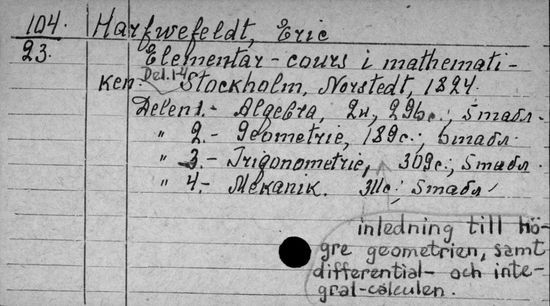 104. Harfwefeldt, Eric
23. Elementar-cours i mathemati-
ken. Del. 1-4. Stockholm, Norstedt, 1824.
Delen 1.- Algebra, 2н, 296с.; 5табл.
" 2.- Geometrie, 189с.; 6табл.
" 3.- Trigonometrie, 309с.; 5табл.
" 4.- Mekanik. 311с.; 5табл.
inledning till hö-
gre geometrien, samt
differential- och inte-
gral-calculen.